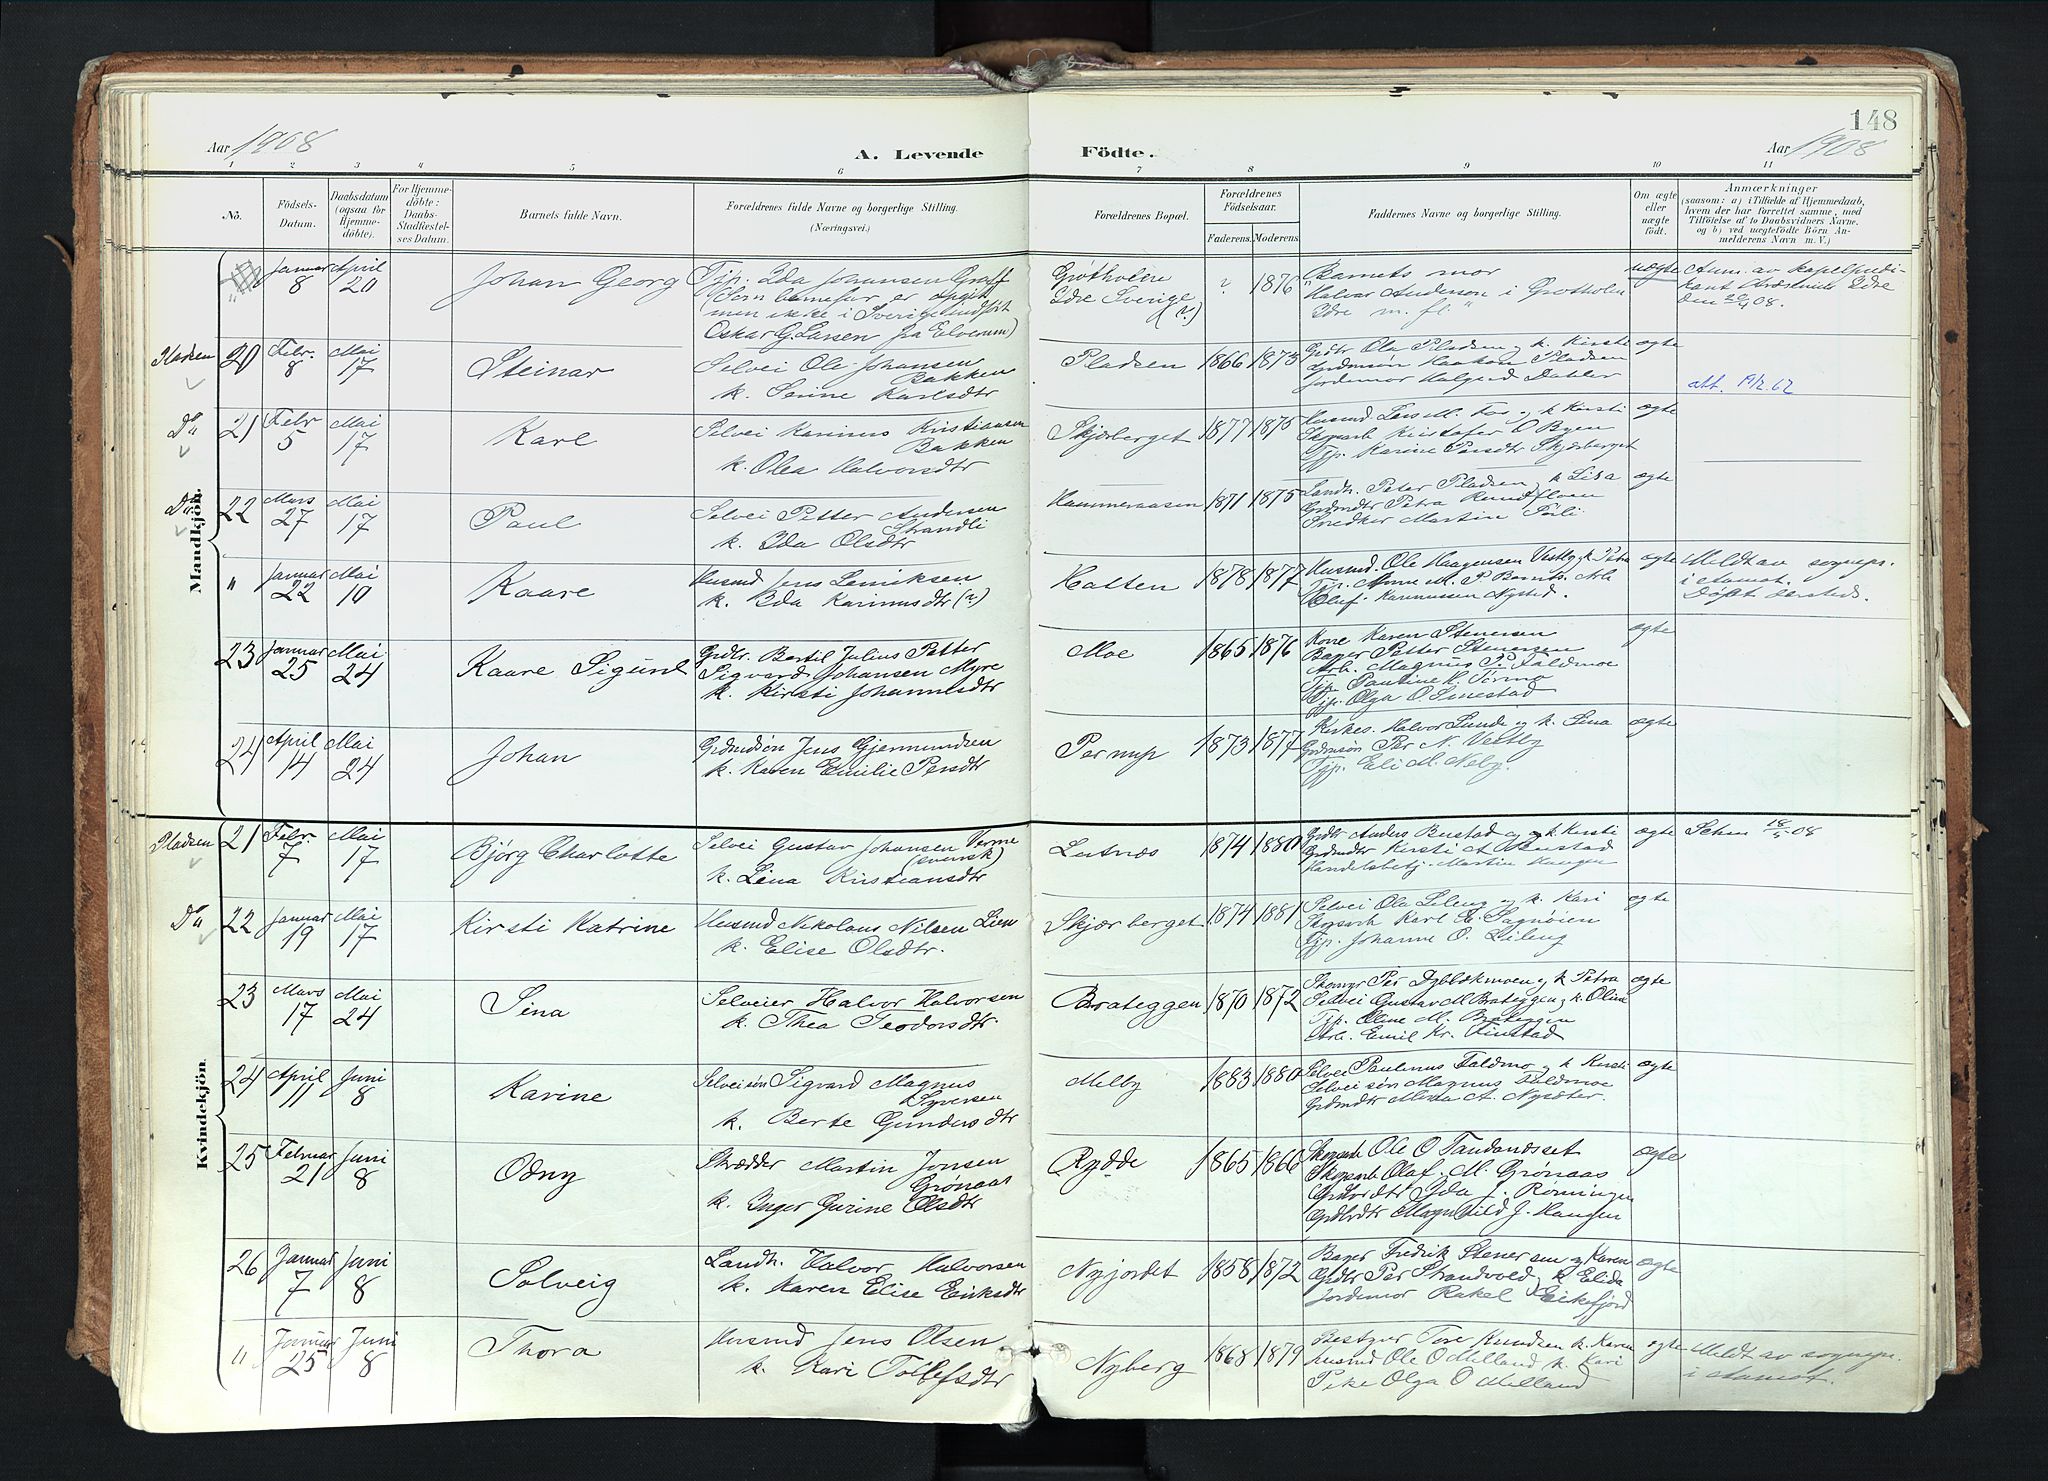 148
Aar 1908
A. Levende Födte.
Aar 1908
1 2 3 4 5 6 7 8 9 10 11
No.
Födsels-Datum.
Daabsdatum (ogsaa for Hjemme-döbte).
For Hjemme-döbte: Daabs-Stadfæstel-ses Datum.
Barnets fulde Navn.
Forældrenes fulde Navne og borgerlige Stilling. (Næringsvei.)
Forældrenes Bopæl.
Forældrenes Födselsaar.
Faderens. Moderens.
Faddernes Navne og borgerlige Stilling.
Om ægte eller uægte födt.
Anmærkninger
(saasom: a) i Tilfælde af Hjemmedaab,
hvem der har forrettet samme, med
Tilföielse af to Daabsvidners Navne.
og b) ved uægtefödte Börn An-
melderens Navn m. V.)
Mandkjön.
" Januar 8 April 20 Johan Georg
Tjp. Ida Johansen Graff
(Som barnefar er opgit
men ikke i Sverige indført
Oskar G. Larsen fra Elverum)
Grøtholen
Idre Sverige
(?)
? 1876
Barnets mor
Halvar Anderson i Grøtholen
Idre m. fl.
uægte
Anm. av kapelpredi-
kant Idre
den 20/4 08.
Pladsen 20 Febr. 8 Mai 17 Steinar
Selvei Ole Johansen
Bakken
k. Serine Karlsdtr
Pladsen 1866 1873
Grdbr Ola Pladsen og k. Kirsti
Grdmsøn Haakon Pladsen
Jordemor Halgerd Dahler
ægte
att. 19/2.62
Do 21 Febr 5 Mai 17 Karl
Selvei Karinus Kristiansen
Bakken
k. Olea Halvorsdtr
Skjærberget 1877 1875
Husmd Lars M. Fos og k Kirsti
Skogarb Kristofer O Byen
Tjp. Karine Larsdtr Skjærberget
ægte
Do 22 Mars 27 Mai 17 Paul
Selvei Petter Andersen
Strandli
k. Ida Olsdtr
Hammeraasen 1871 1875
Landh. Peter Pladsen, k Lisa
Grdmdtr Petra Rundfloen
Snedker Martin
ægte
" Januar 22 Mai 10 Kaare
Husmd Jens Lauriksen
k. Ida Karinusdtr (?)
Hatten 1878 1877
Husmd. Ole Haagensen Vestby, k. Petra
Tjp. Anne M. P. Arb
Oluf Rasmussen Nysted.
ægte
Meldt av sognepr.
i Aamot.
Døpt dersteds.
23 Januar 25 Mai 24 Kaare Sigurd
Grdbr. Bertil Julius Petter
Sigvard Johansen Myre
k. Kirsti Johannesdtr
Moe 1865 1876
Kone Karen Stenersen
Bager Petter Stenersen
Arb. Magnus P. Faldmoe
Tjp. Pauline H. Tørmo
Tjp. Olga O.
ægte
24 April 14 Mai 24 Johan
Grdmdsøn Jens Gjermundsen
k. Karen Emilie Persdtr
Pernup 1873 1877
Kirkes. Halvor Lunde og k. Lina
Grdmsøn Per N. Vestby
Tjp. Eli M. Neby.
ægte
Kvindekjön.
Pladsen 21 Febr. 7 Mai 17 Bjørg Charlotte
Selvei Gustav Johansen Verme
(svensk)
k. Lina Kristiansdtr
Lutnæs 1874 1880
Grdbr Anders Berstad og k. Kirsti
Grdmdtr Kirsti A Berstad
Handelsbetj. Martin Haugen
ægte
18/5 08
Do 22 Januar 19 Mai 17 Kirsti Katrine
Husmd Nikolaus Nilsen Lien
k. Elise Olsdtr.
Skjærberget 1874 1881
Selvei Ola Lileng og k. Kari
Skogarb Karl E. Sagnøien
Tjp. Johanne O. Lileng
ægte
23 Mars 17 Mai 24 Sina
Selveier Halvor Halvorsen
k. Thea Teodorsdtr
Brateggen 1870 1872
Skomgr Per Dybbækmoen, k Petra
Selvei Gustav M. Brateggen, k. Oline
Tjp. Oline M. Brateggen
Arb. Emil Kr. Finstad
ægte
24 April 11 Juni 8 Karine
Selveisøn Sigvard Magnus
Syversen
k. Berte Gundersdtr
Melby 1883 1880
Selvei Paulinus Faldmo og k Kirsti
Selveisøn Magnus Faldmoe
Grdmdtr Mina A. Nysæter.
ægte
25 Februar 21 Juni 8 Odny
Skrædder Martin Jonsen
Grønaas
k. Inger Gurine Olsdtr
Rydde 1865 1866
Skogarb Ole O Tandandsset
Skogarb Olaf M. Grønaas
Grdbrdtr Ida J. Rønningen
Grdbrdtr Magnhild J. Haugen
ægte
26 Januar 7 Juni 8 Solveig
Landh. Halvor Halvorsen
k. Karen Elise Eriksdtr
Nyjordet 1858 1872
Bager Fredrik Stenersen og Karen
Grdbr Per Strandvold, k Elida
Jordemor Rakel Eikefjord
ægte
" Januar 25 Juni 8 Thora
Husmd Jens Olsen
k. Kari Tollefsdtr
Nyberg 1868 1879
Bestyr Tore Knudsen k. Karen
Husmd Ole O Melland k. Kari
Pike Olga O Melland
ægte
Meldt av sognepr.
i Aamot.